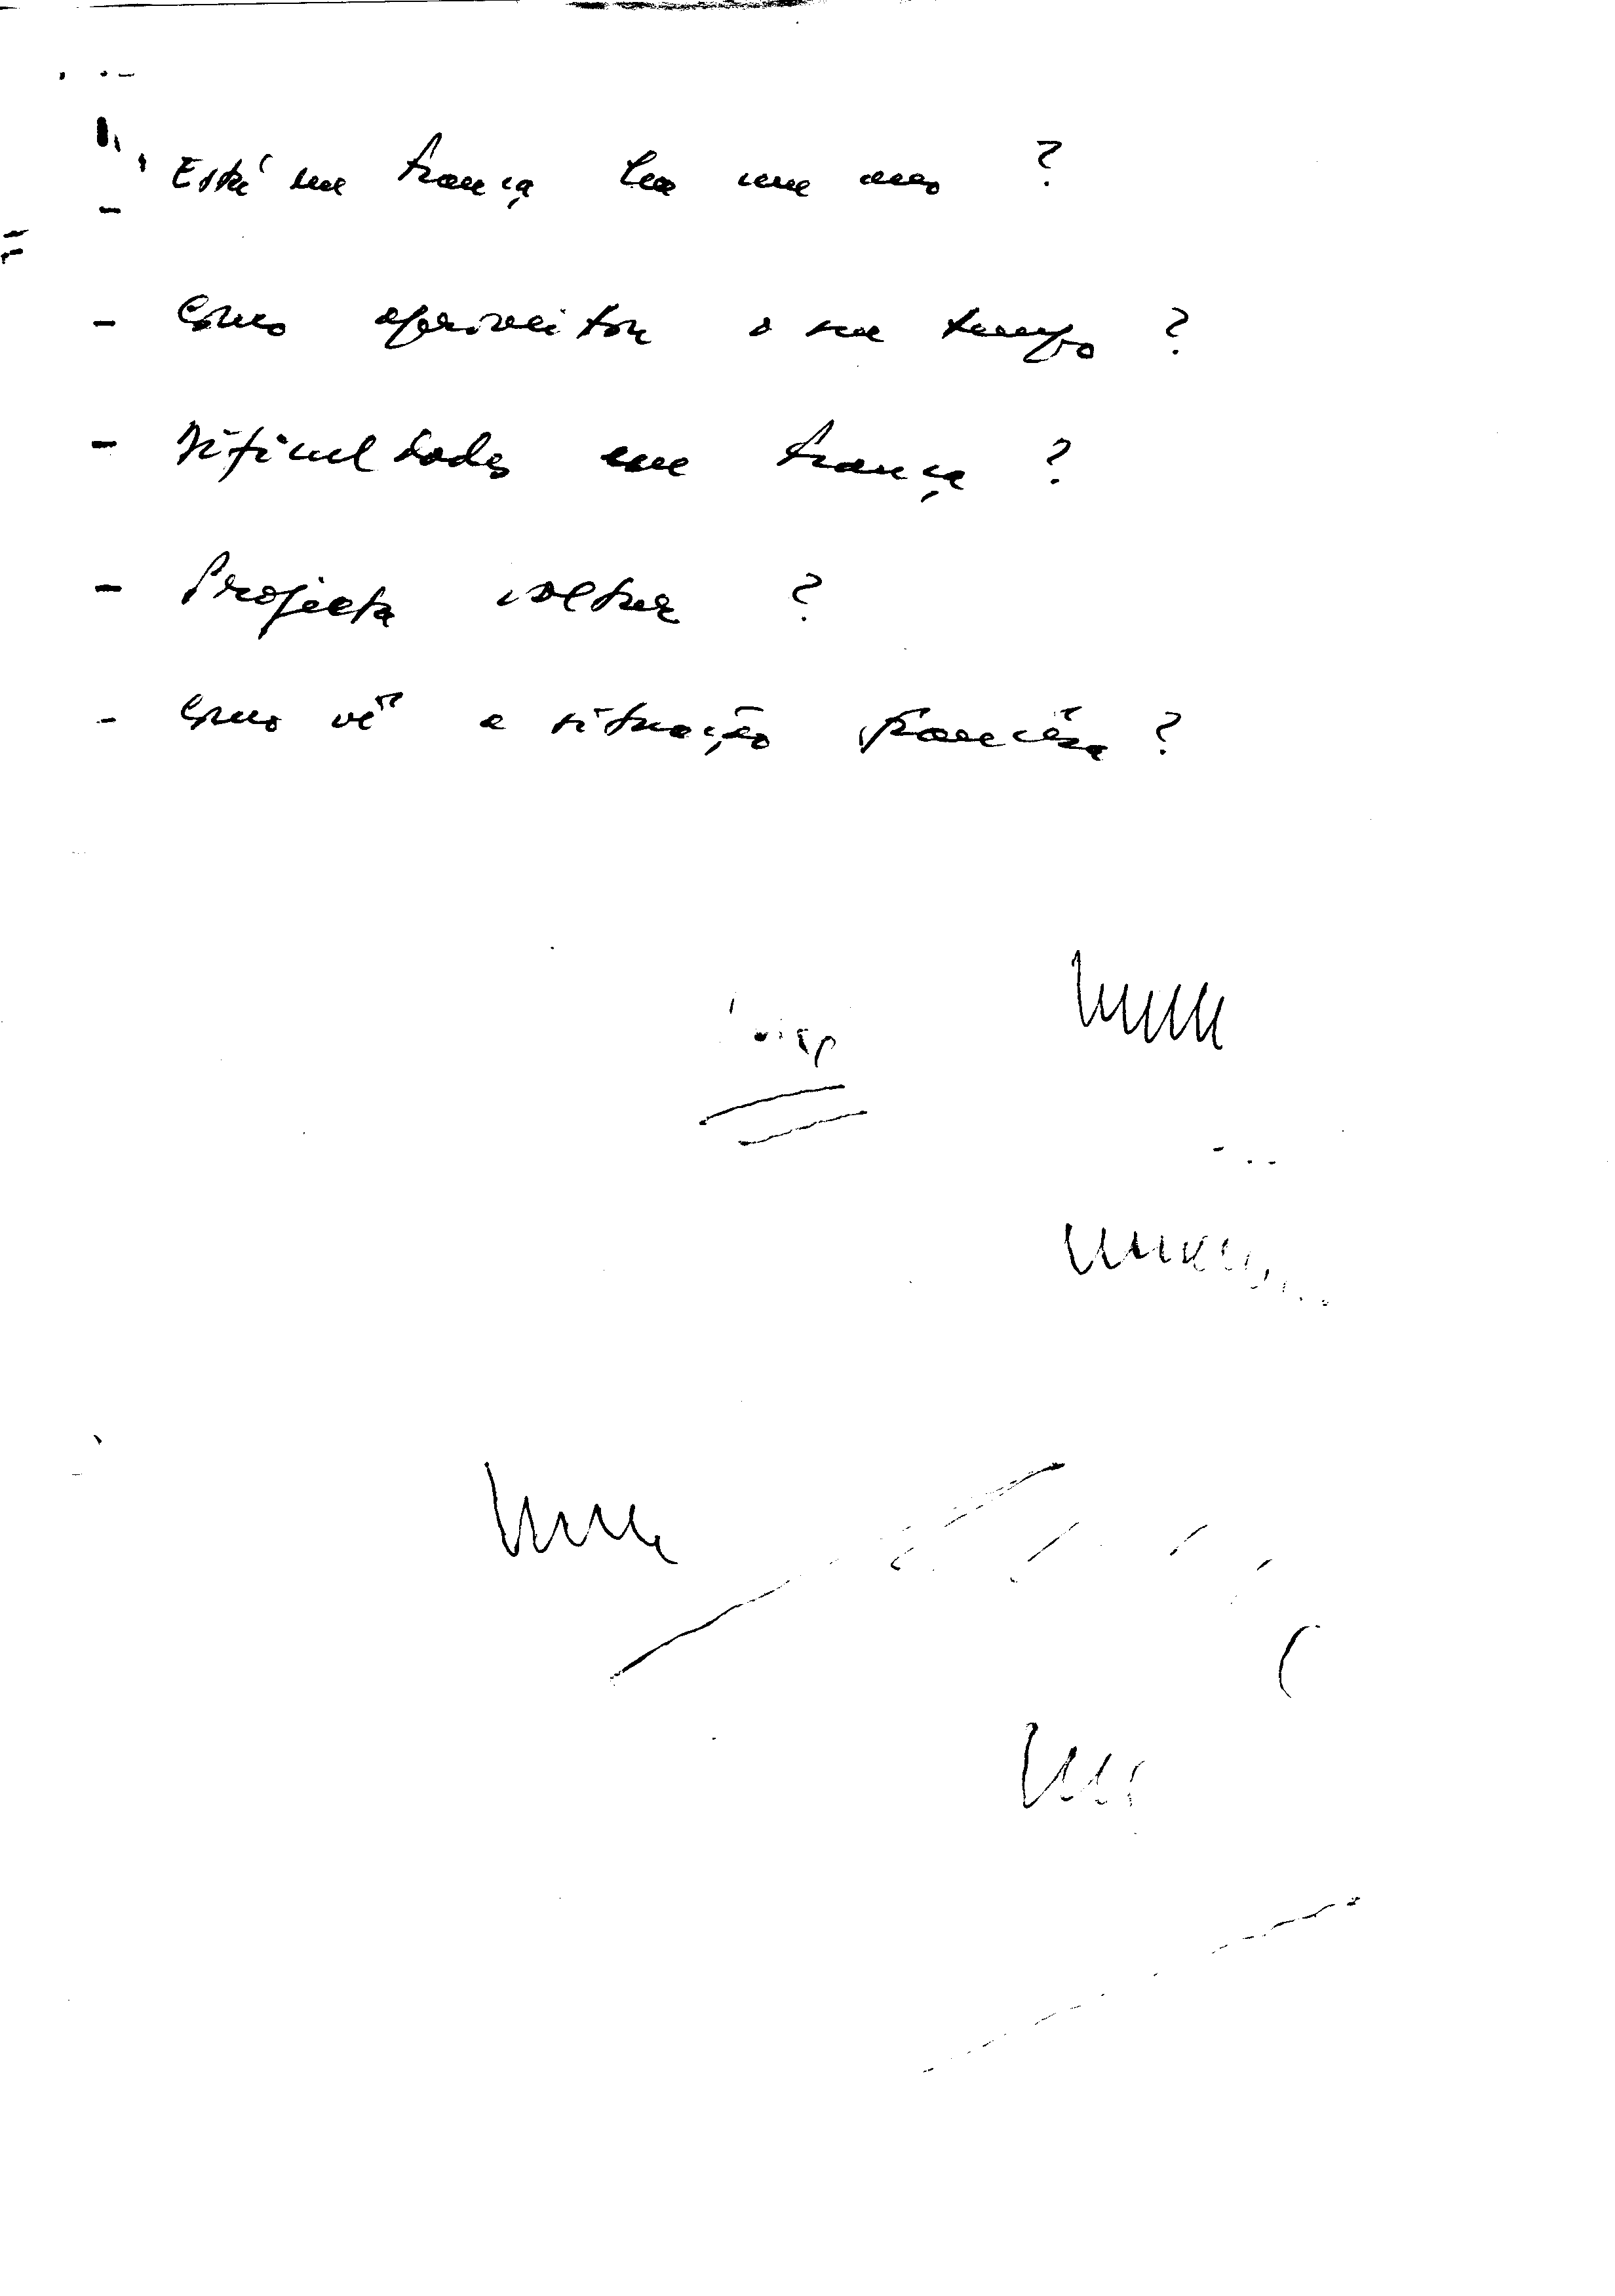 Está em França há um ano ?
- Como aproveitou o seu tempo ?
- Dificuldades em França ?
- Projecta voltar ?
- Como vê a situação francêsa ?